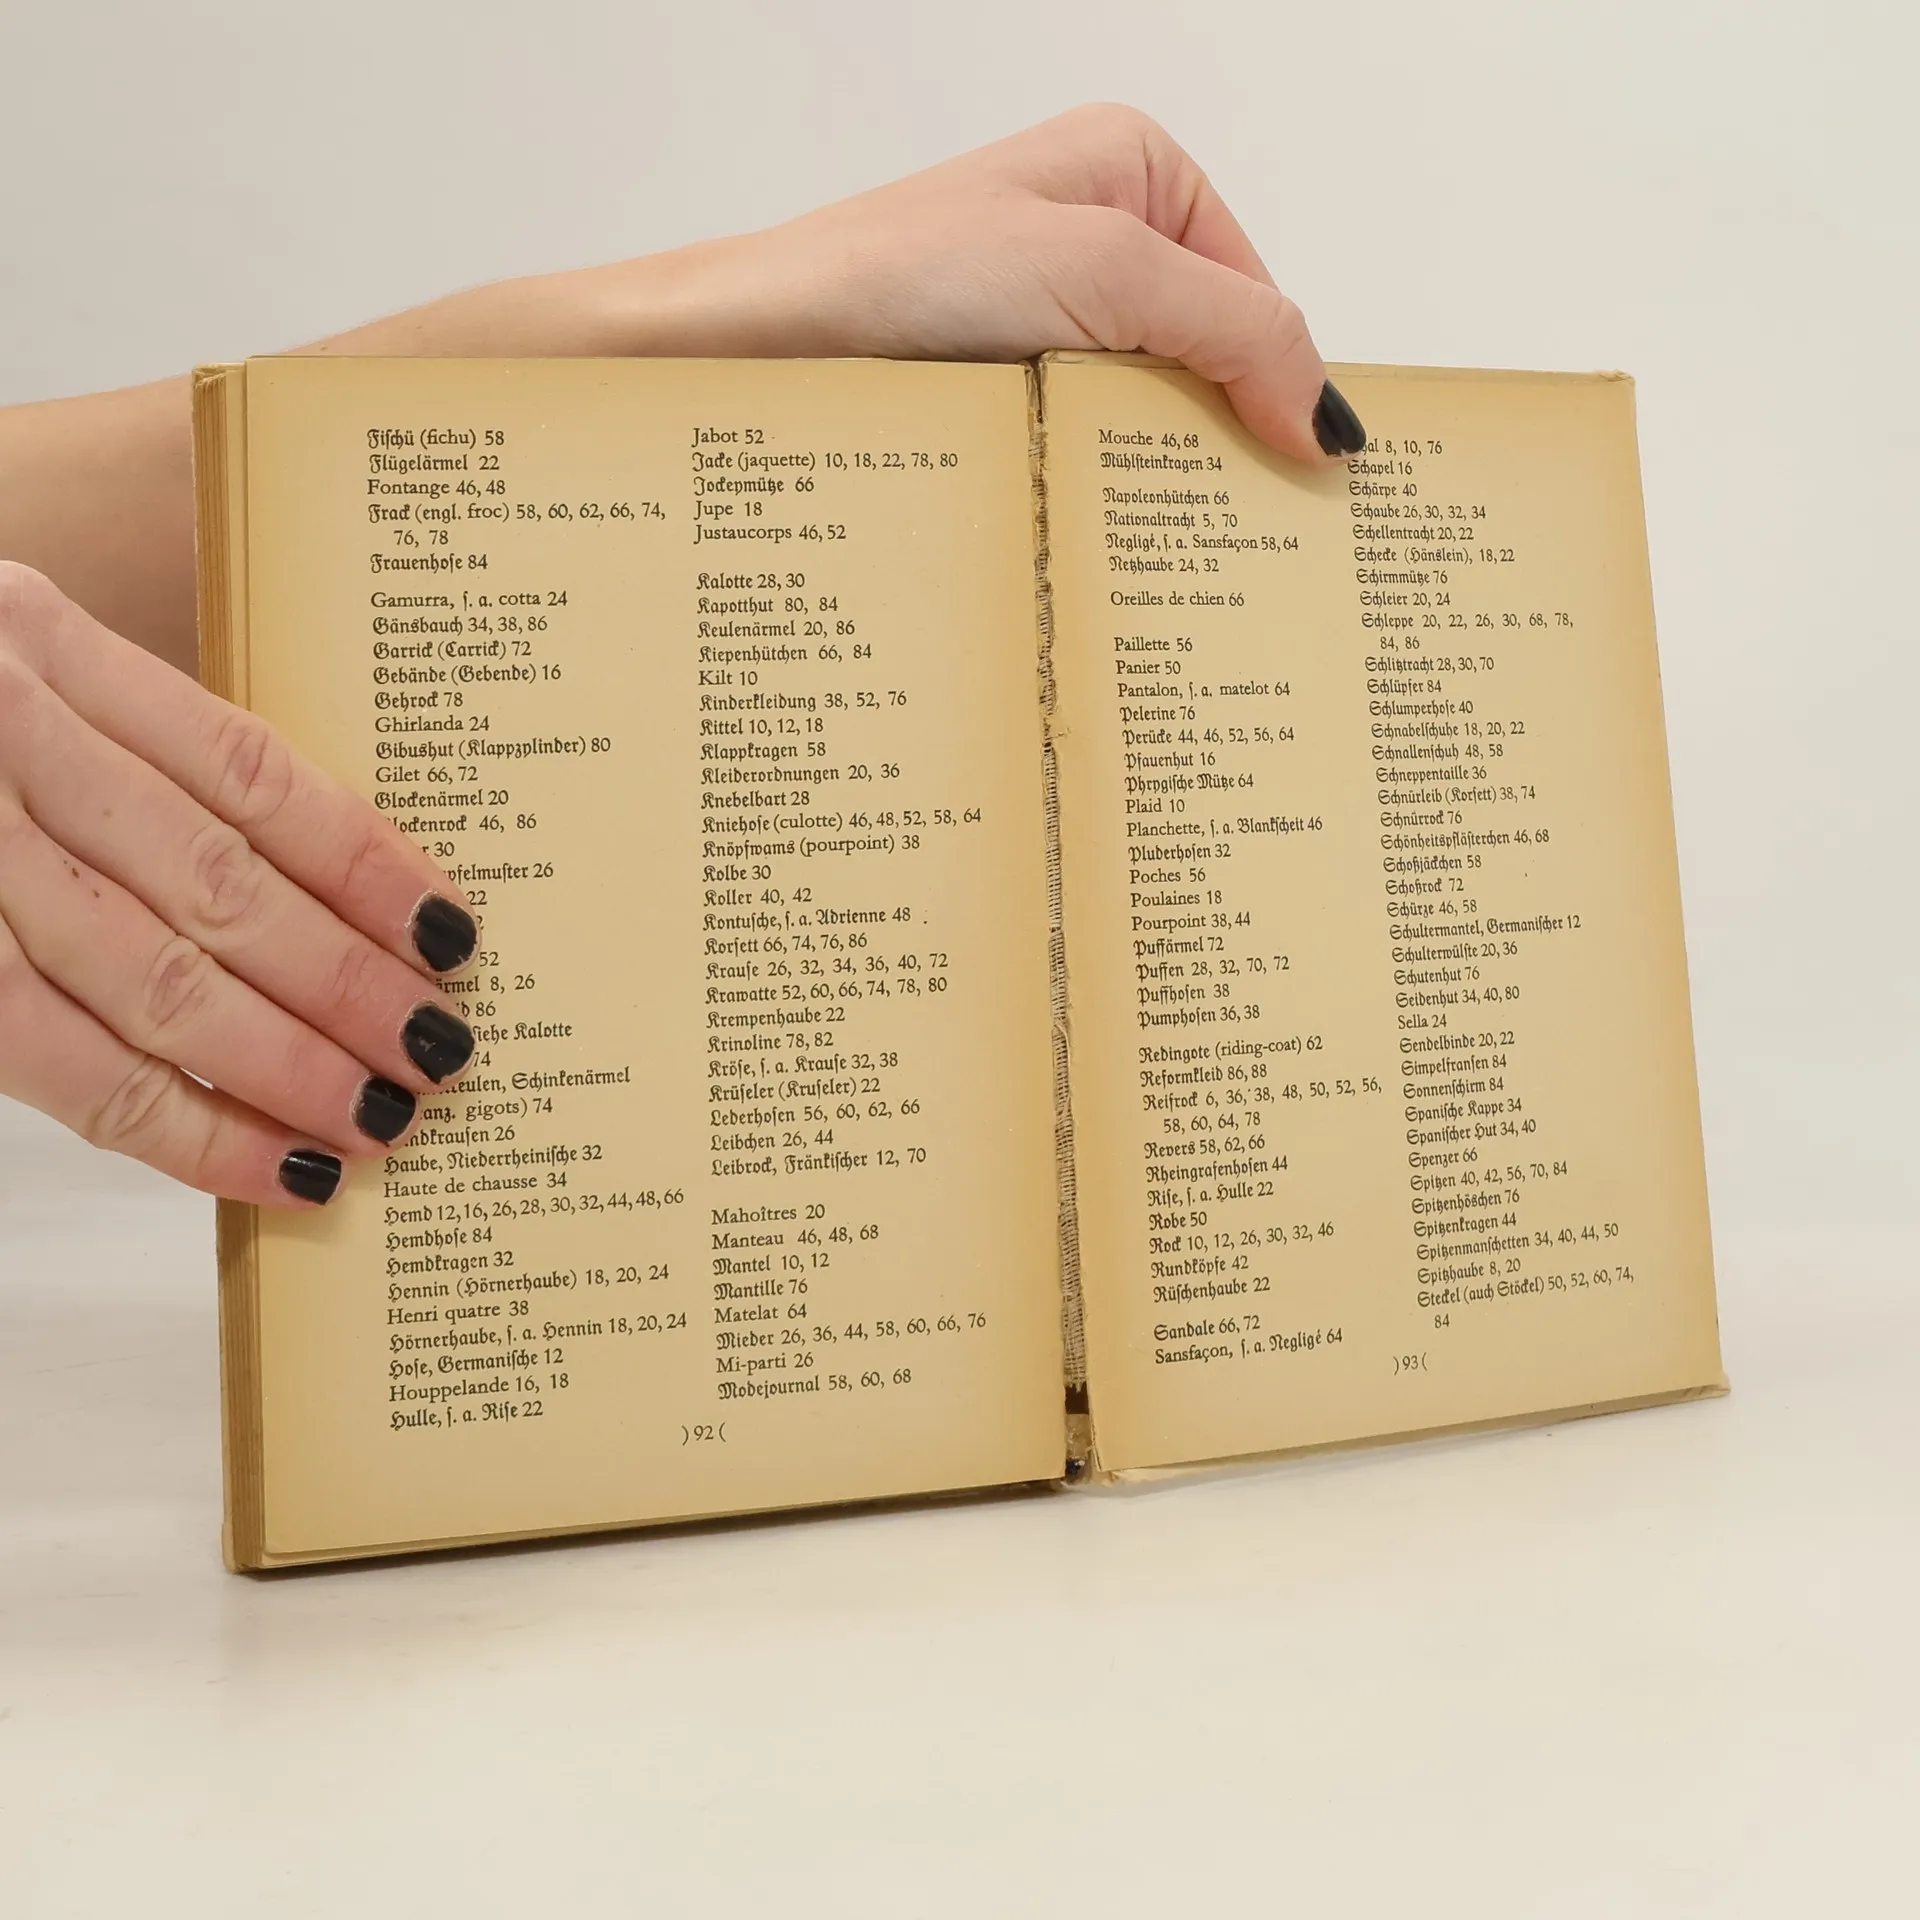 Fiſchü (fichu) 58
Flügelärmel 22
Fontange 46, 48
Frack (engl. froc) 58, 60, 62, 66, 74,
76, 78
Frauenhoſe 84
Gamurra, ſ. a. cotta 24
Gänsbauch 34, 38, 86
Garrick (Carrick) 72
Gebände (Gebende) 16
Gehrock 78
Ghirlanda 24
Gibushut (Klappzylinder) 80
Gilet 66, 72
Glockenärmel 20
lockenrock 46, 86
r 30
pfelmuſter 26
22
2
52
ärmel 8, 26
b 86
ſiehe Kalotte
74
eulen, Schinkenärmel
anz. gigots) 74
ndkrauſen 26
Haube, Niederrheiniſche 32
Haute de chausse 34
Hemd 12, 16, 26, 28, 30, 32, 44, 48, 66
Hemdhoſe 84
Hemdkragen 32
Hennin (Hörnerhaube) 18, 20, 24
Henri quatre 38
Hörnerhaube, ſ. a. Hennin 18, 20, 24
Hoſe, Germaniſche 12
Houppelande 16, 18
Hulle, ſ. a. Riſe 22
Jabot 52
Jacke (jaquette) 10, 18, 22, 78, 80
Jockeymütze 66
Jupe 18
Justaucorps 46, 52
Kalotte 28, 30
Kapotthut 80, 84
Keulenärmel 20, 86
Kiepenhütchen 66, 84
Kilt 10
Kinderkleidung 38, 52, 76
Kittel 10, 12, 18
Klappkragen 58
Kleiderordnungen 20, 36
Knebelbart 28
Kniehoſe (culotte) 46, 48, 52, 58, 64
Knöpfwams (pourpoint) 38
Kolbe 30
Koller 40, 42
Kontuſche, ſ. a. Adrienne 48
Korſett 66, 74, 76, 86
Krauſe 26, 32, 34, 36, 40, 72
Krawatte 52, 60, 66, 74, 78, 80
Krempenhaube 22
Krinoline 78, 82
Kröſe, ſ. a. Krauſe 32, 38
Krüſeler (Kruſeler) 22
Lederhoſen 56, 60, 62, 66
Leibchen 26, 44
Leibrock, Fränkiſcher 12, 70
Mahoîtres 20
Manteau 46, 48, 68
Mantel 10, 12
Mantille 76
Matelat 64
Mieder 26, 36, 44, 58, 60, 66, 76
Mi-parti 26
Modejournal 58, 60, 68
)92(
Mouche 46, 68
Mühlſteinkragen 34
Napoleonhütchen 66
Nationaltracht 5, 70
Negligé, ſ. a. Sansfaçon 58, 64
Netzhaube 24, 32
Oreilles de chien 66
Paillette 56
Panier 50
Pantalon, ſ. a. matelot 64
Pelerine 76
Perücke 44, 46, 52, 56, 64
Pfauenhut 16
Phrygiſche Mütze 64
Plaid 10
Planchette, ſ. a. Blankſcheit 46
Pluderhoſen 32
Poches 56
Poulaines 18
Pourpoint 38, 44
Puffärmel 72
Puffen 28, 32, 70, 72
Puffhoſen 38
Pumphoſen 36, 38
Redingote (riding-coat) 62
Reformkleid 86, 88
Reifrock 6, 36, 38, 48, 50, 52, 56,
58, 60, 64, 78
Revers 58, 62, 66
Rheingrafenhoſen 44
Riſe, ſ. a. Hulle 22
Robe 50
Rock 10, 12, 26, 30, 32, 46
Rundköpfe 42
Rüſchenhaube 22
Sandale 66, 72
Sansfaçon, ſ. a. Negligé 64
al 8, 10, 76
Schapel 16
Schärpe 40
Schaube 26, 30, 32, 34
Schellentracht 20, 22
Schecke (Hänslein), 18, 22
Schirmmütze 76
Schleier 20, 24
Schleppe 20, 22, 26, 30, 68, 78,
84, 86
Schlitztracht 28, 30, 70
Schlüpfer 84
Schlumperhoſe 40
Schnabelſchuhe 18, 20, 22
Schnallenſchuh 48, 58
Schneppentaille 36
Schnürleib (Korſett) 38, 74
Schnürrock 76
Schönheitspfläſterchen 46, 68
Schoßjäckchen 58
Schoßrock 72
Schürze 46, 58
Schultermantel, Germaniſcher 12
Schulterwülſte 20, 36
Schutenhut 76
Seidenhut 34, 40, 80
Sella 24
Sendelbinde 20, 22
Simpelfranſen 84
Sonnenſchirm 84
Spaniſche Kappe 34
Spaniſcher Hut 34, 40
Spenzer 66
Spitzen 40, 42, 56, 70, 84
Spitzenhöschen 76
Spitzenkragen 44
Spitzenmanſchetten 34, 40, 44, 50
Spitzhaube 8, 20
Steckel (auch Stöckel) 50, 52, 60, 74,
84
)93(